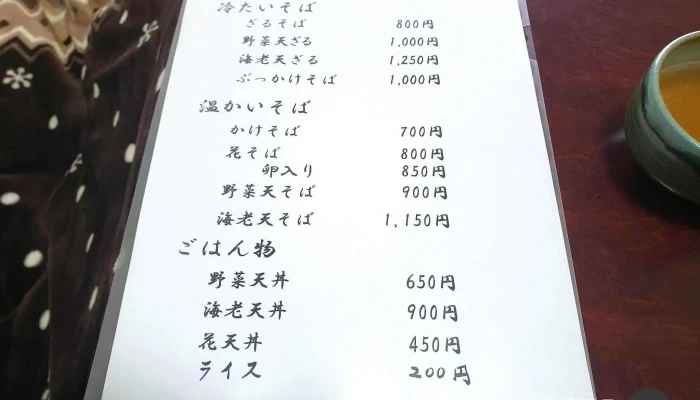 冷たいそば
ざるそば 800円
野菜天ざる 1,000円
海老天ざる 1,250円
ぶっかけそば 1,000円
温かいそば
かけそば 700円
花そば 800円
卵入り 850円
野菜天そば 900円
海老天そば 1,150円
ごはん物
野菜天丼 650円
海老天丼 900円
花天丼 450円
ライス 200円